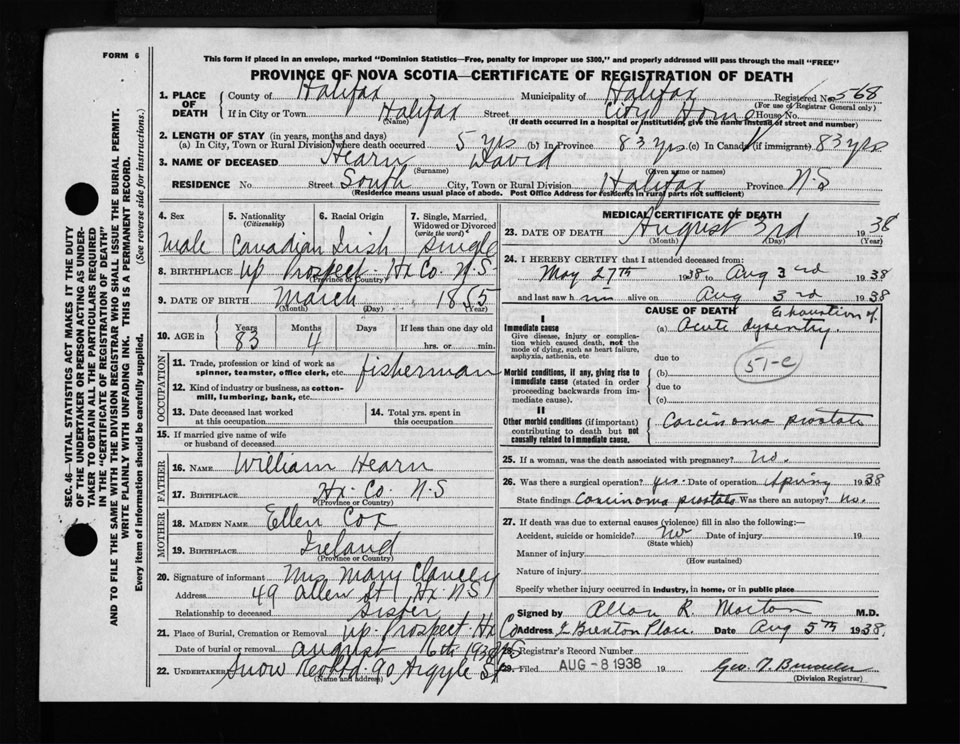 FORM 6
This form if placed in an envelope, marked "Dominion Statistics—Free, penalty for improper use $300," and properly addressed will pass through the mail "FREE"
PROVINCE OF NOVA SCOTIA—CERTIFICATE OF REGISTRATION OF DEATH
SEC. 46—VITAL STATISTICS ACT MAKES IT THE DUTY
OF THE UNDERTAKER OR PERSON ACTING AS UNDER-
TAKER TO OBTAIN ALL THE PARTICULARS REQUIRED
IN THE "CERTIFICATE OF REGISTRATION OF DEATH"
AND TO FILE THE SAME WITH THE DIVISION REGISTRAR WHO SHALL ISSUE THE BURIAL PERMIT.
WRITE PLAINLY WITH UNFADING INK. THIS IS A PERMANENT RECORD.
Every item of information should be carefully supplied. (See reverse side for instructions.)
1. PLACE OF DEATH County of Halifax Municipality of Halifax Registered No. 568
(For use of Registrar General only)
If in City or Town Halifax Street City Home House No.
(Name) (If death occurred in a hospital or institution, give the name instead of street and number)
2. LENGTH OF STAY (in years, months and days)
(a) In City, Town or Rural Division where death occurred 5 yrs (b) In Province 83 yrs (c) In Canada (if immigrant) 83 yrs
3. NAME OF DECEASED Hearn David
(Surname) (Given name or names)
RESIDENCE No. Street South City, Town or Rural Division Halifax Province N-S
(Residence means usual place of abode. Post Office Address for residents in rural parts not sufficient)
4. Sex 5. Nationality (Citizenship) 6. Racial Origin 7. Single, Married, Widowed or Divorced (write the word)
male Canadian Irish single
8. BIRTHPLACE Up Prospect Hx Co. N.S-
(Province or Country)
9. DATE OF BIRTH March 1855
(Month) (Day) (Year)
10. AGE in Years Months Days If less than one day old
83 4 hrs. or min.
OCCUPATION
11. Trade, profession or kind of work as spinner, teamster, office clerk, etc. fisherman
12. Kind of industry or business, as cotton-mill, lumbering, bank, etc.
13. Date deceased last worked at this occupation
14. Total yrs. spent in this occupation
15. If married give name of wife or husband of deceased
FATHER
16. NAME William Hearn
17. BIRTHPLACE Hx. Co. N-S
(Province or Country)
MOTHER
18. MAIDEN NAME Ellen Cox
19. BIRTHPLACE Ireland
(Province or Country)
20. Signature of informant Mrs Mary Clancey
Address 49 Allen St Hx. N.S
Relationship to deceased Sister
21. Place of Burial, Cremation or Removal Up. Prospect Hx Co
Date of burial or removal August 6th 1938 NS
22. UNDERTAKER Snow Co Ltd. 90 Argyle St
(Name and address)
MEDICAL CERTIFICATE OF DEATH
23. DATE OF DEATH August 3rd 1938
(Month) (Day) (Year)
24. I HEREBY CERTIFY that I attended deceased from:
May 27th 1938 to Aug 3rd 1938
and last saw him alive on Aug 3rd 1938
CAUSE OF DEATH Exhaustion of
I
Immediate cause (a) Acute dysentry.
Give disease, injury or complication which caused death, not the mode of dying, such as heart failure, asphyxia, asthenia, etc
due to
51-c
Morbid conditions, if any, giving rise to immediate cause (stated in order proceeding backwards from immediate cause).
(b)
due to
(c)
II
Other morbid conditions (if important) contributing to death but not causally related to immediate cause. Carcinoma prostate
25. If a woman, was the death associated with pregnancy? No.
26. Was there a surgical operation? yes. Date of operation Spring 1938
State findings Carcinoma prostate Was there an autopsy? No.
27. If death was due to external causes (violence) fill in also the following:—
Accident, suicide or homicide? No Date of injury 19
(State which)
Manner of injury
(How sustained)
Nature of injury
Specify whether injury occurred in industry, in home, or in public place
Signed by Allan R. Morton M.D.
Address 2 Brenton Place. Date Aug 5th 1938.
28. Registrar's Record Number
29. Filed AUG - 8 1938 19 Geo.
(Division Registrar)